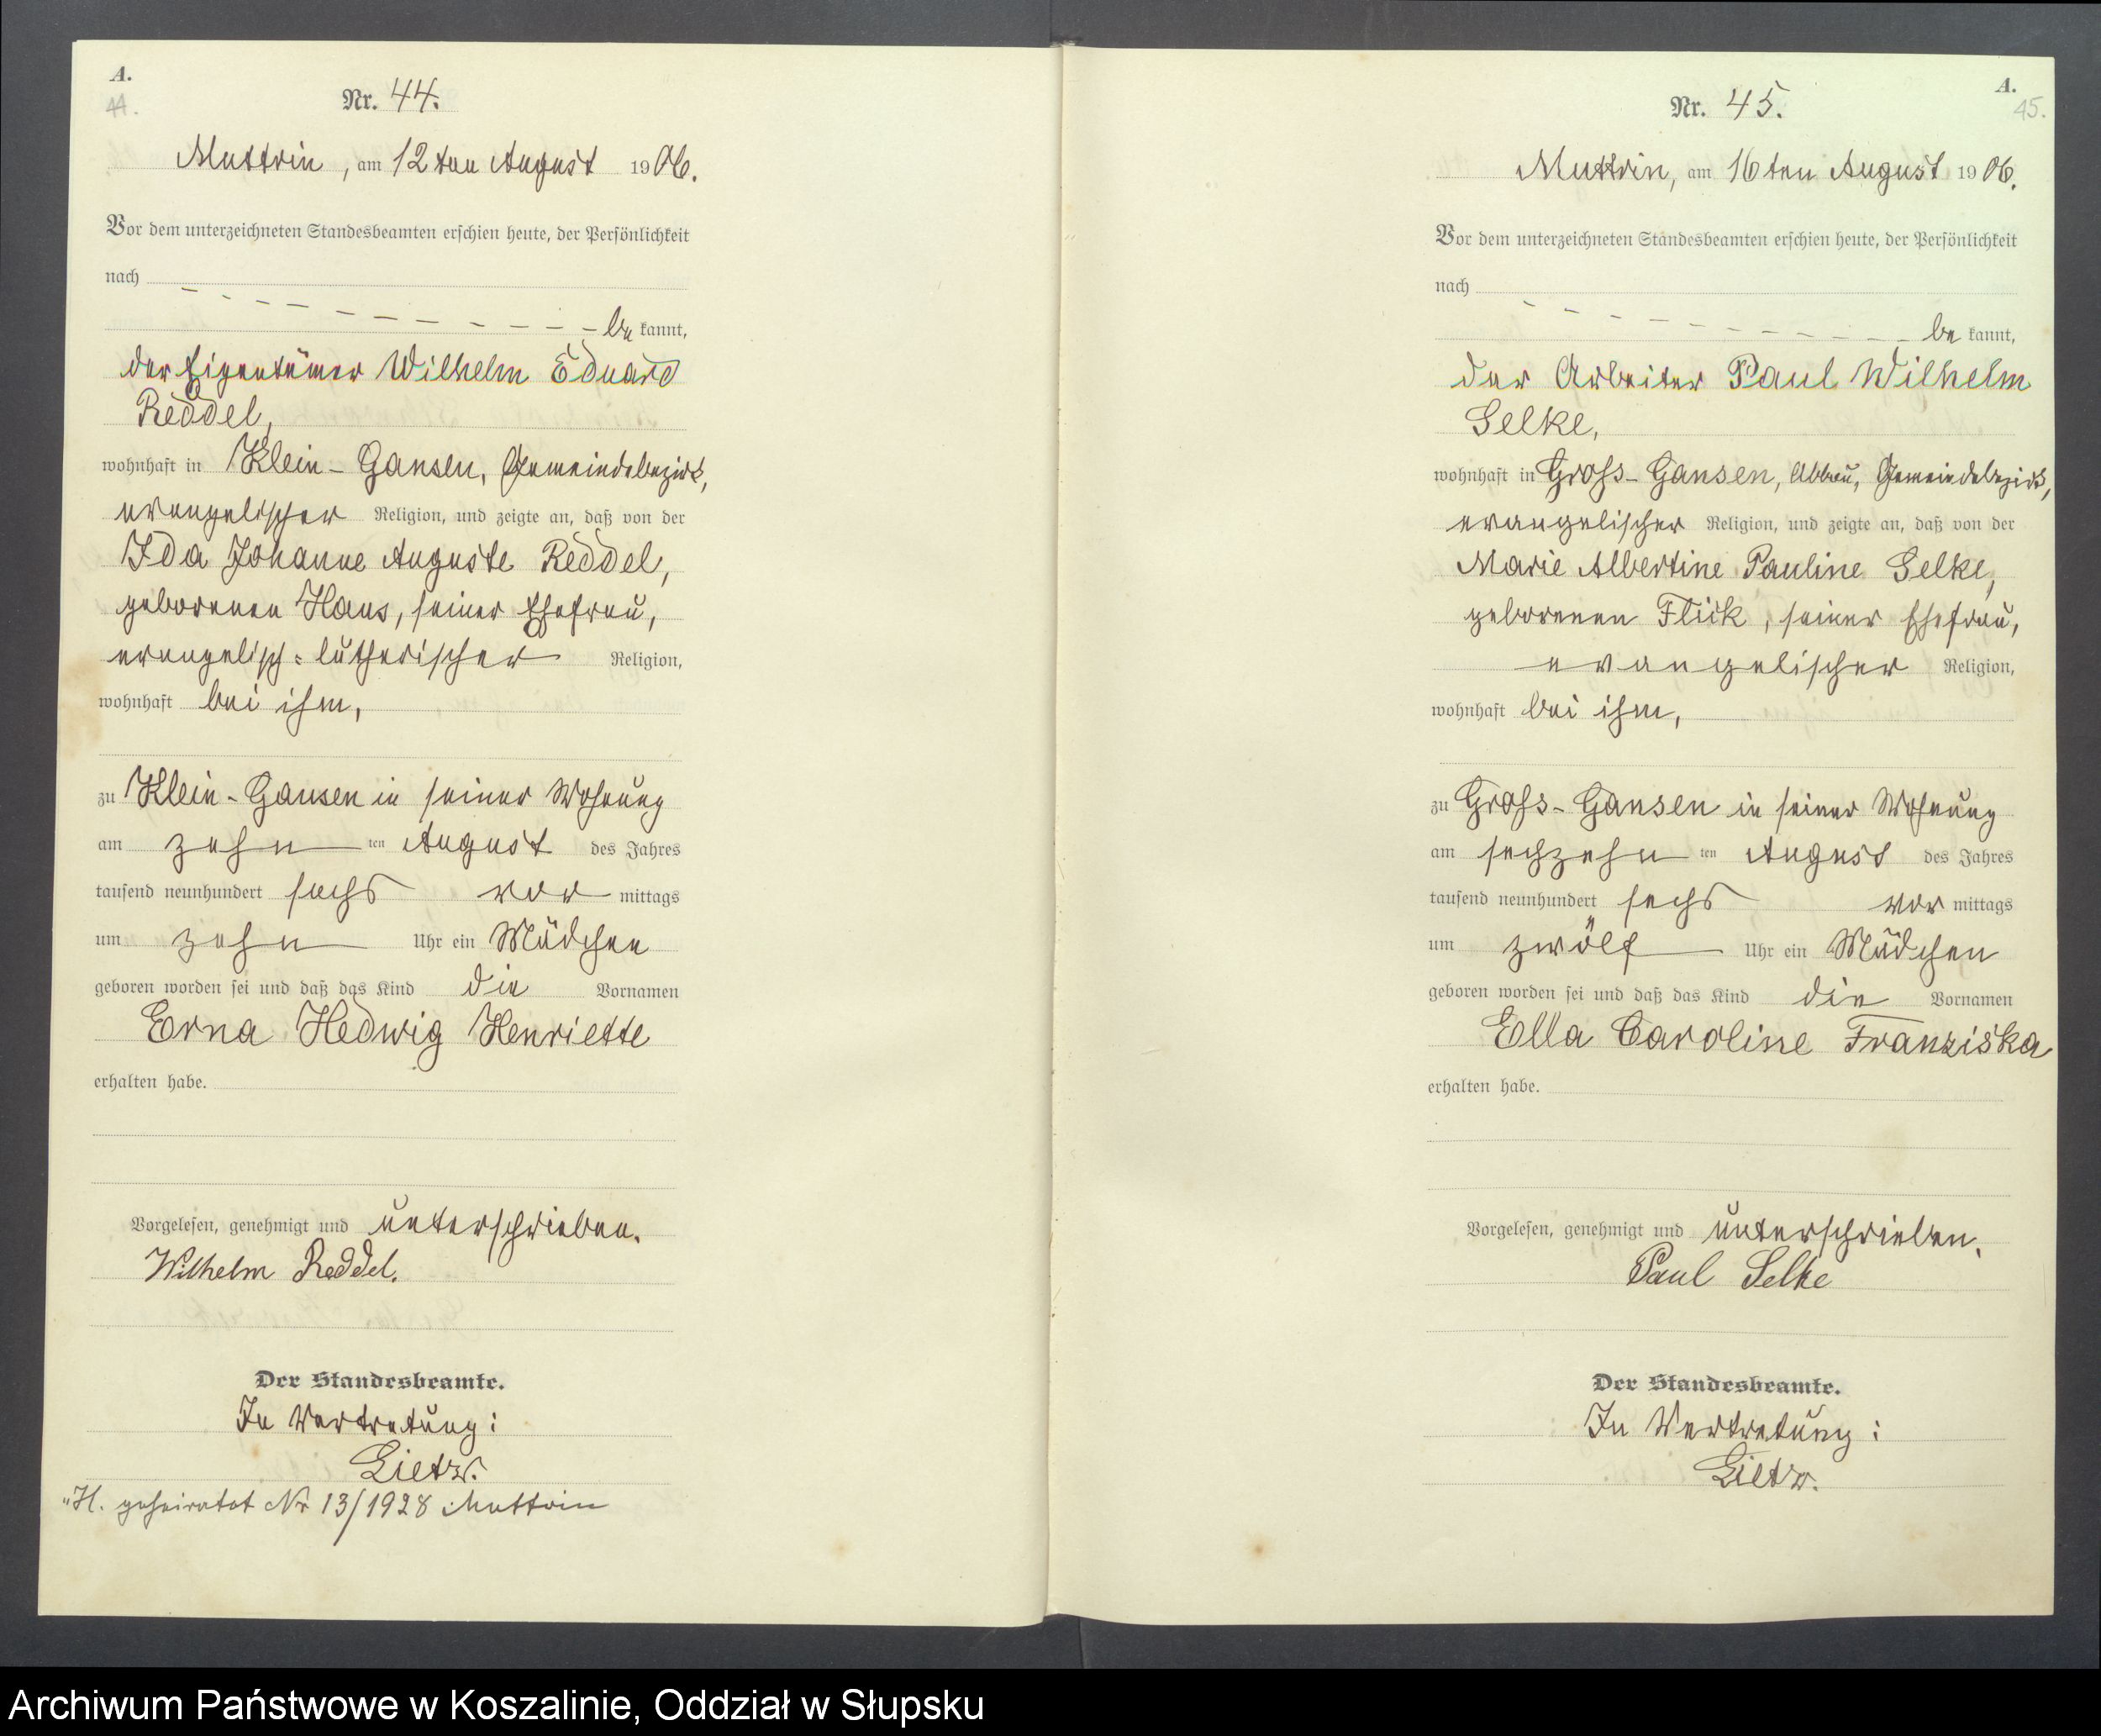 A.
44.
Nr. 44.
Muttrin, am 12ten August 1906.
Vor dem unterzeichneten Standesbeamten erschien heute, der Persönlichkeit
nach
be kannt,
der Eigentümer Wilhelm Eduard
Reddel,
wohnhaft in Klein-Gansen, Gemeindebezirk,
evangelischer Religion, und zeigte an, daß von der
Ida Johanne Auguste Reddel,
geborenen Haus, seiner Ehefrau,
evangelisch-lutherischer Religion,
wohnhaft bei ihm,
zu Klein-Gansen in seiner Wohnung
am zehn ten August des Jahres
tausend neunhundert sechs vor mittags
um zehn Uhr ein Mädchen
geboren worden sei und daß das Kind die Vornamen
Erna Hedwig Henriette
erhalten habe.
Vorgelesen, genehmigt und unterschrieben.
Wilhelm Reddel.
Der Standesbeamte.
In Vertretung:
Lietz.
H. geheiratet Nr 13/1928 Muttrin
A.
45.
Nr. 45.
Muttrin, am 16ten August 1906.
Vor dem unterzeichneten Standesbeamten erschien heute, der Persönlichkeit
nach
be kannt,
der Arbeiter Paul Wilhelm
Selke,
wohnhaft in Groß-Gansen, Abbau, Gemeindebezirk,
evangelischer Religion, und zeigte an, daß von der
Marie Albertine Pauline Selke,
geborenen Flick, seiner Ehefrau,
evangelischer Religion,
wohnhaft bei ihm,
zu Groß-Gansen in seiner Wohnung
am sechzehn ten August des Jahres
tausend neunhundert sechs vor mittags
um zwölf Uhr ein Mädchen
geboren worden sei und daß das Kind die Vornamen
Ella Caroline Franziska
erhalten habe.
Vorgelesen, genehmigt und unterschrieben.
Paul Selke
Der Standesbeamte.
In Vertretung:
Lietz.
Archiwum Państwowe w Koszalinie, Oddział w Słupsku